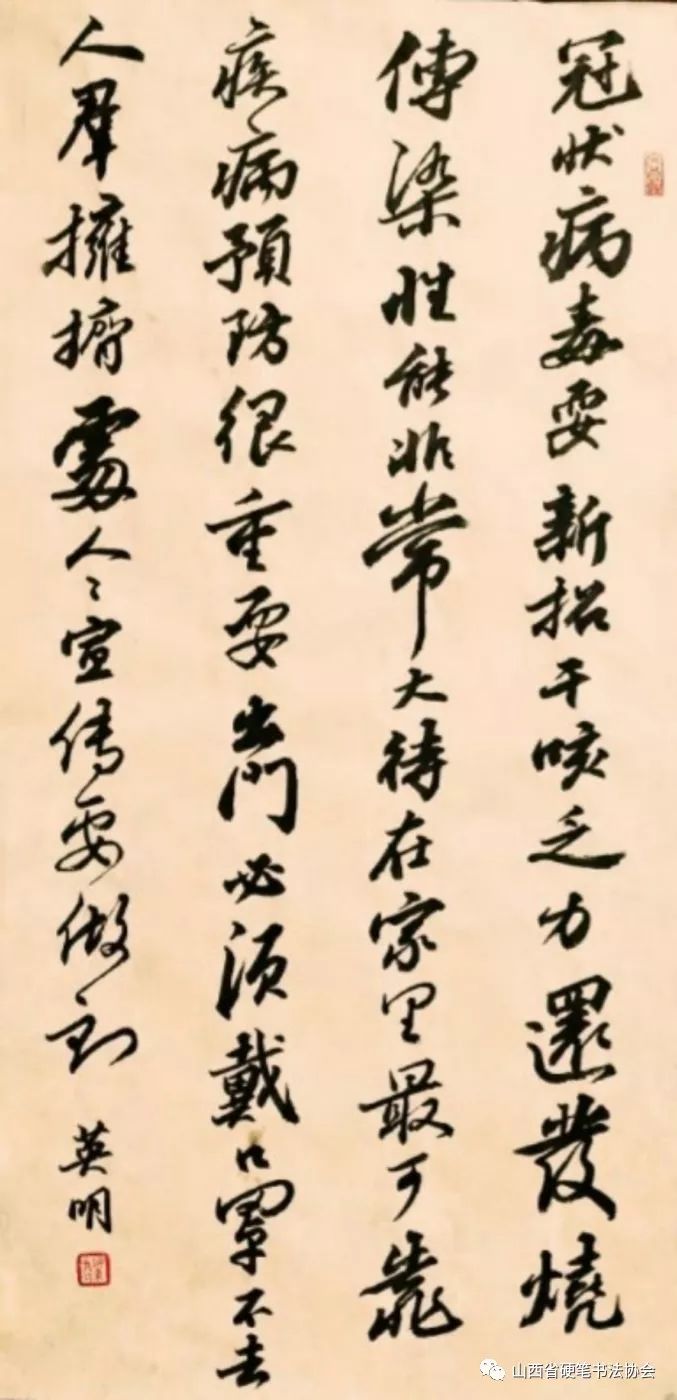 冠状病毒耍新招干咳乏力還發燒
傳染性能非常大待在家里最可靠
疾病預防很重要出門必须戴口罩不去
人羣擁擠處人々宣传要做到
英明
山西省硬笔书法协会